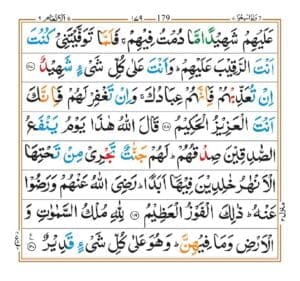 ١٧٩ 179
عَلَيْهِمْ شَهِيْدًا مَّا دُمْتُ فِيْهِمْ ۚ فَلَمَّا تَوَفَّيْتَنِيْ كُنْتَ
اَنْتَ الرَّقِيْبَ عَلَيْهِمْ ؕ وَاَنْتَ عَلٰى كُلِّ شَيْءٍ شَهِيْدٌ
اِنْ تُعَذِّبْهُمْ فَاِنَّهُمْ عِبَادُكَ ۚ وَاِنْ تَغْفِرْ لَهُمْ فَاِنَّكَ
اَنْتَ الْعَزِيْزُ الْحَكِيْمُ قَالَ اللّٰهُ هٰذَا يَوْمُ يَنْفَعُ
الصّٰدِقِيْنَ صِدْقُهُمْ ؕ لَهُمْ جَنّٰتٌ تَجْرِيْ مِنْ تَحْتِهَا
الْاَنْهٰرُ خٰلِدِيْنَ فِيْهَاۤ اَبَدًا ؕ رَضِيَ اللّٰهُ عَنْهُمْ وَرَضُوْا
عَنْهُ ؕ ذٰلِكَ الْفَوْزُ الْعَظِيْمُ لِلّٰهِ مُلْكُ السَّمٰوٰتِ وَ
الْاَرْضِ وَمَا فِيْهِنَّ ؕ وَهُوَ عَلٰى كُلِّ شَيْءٍ قَدِيْرٌ